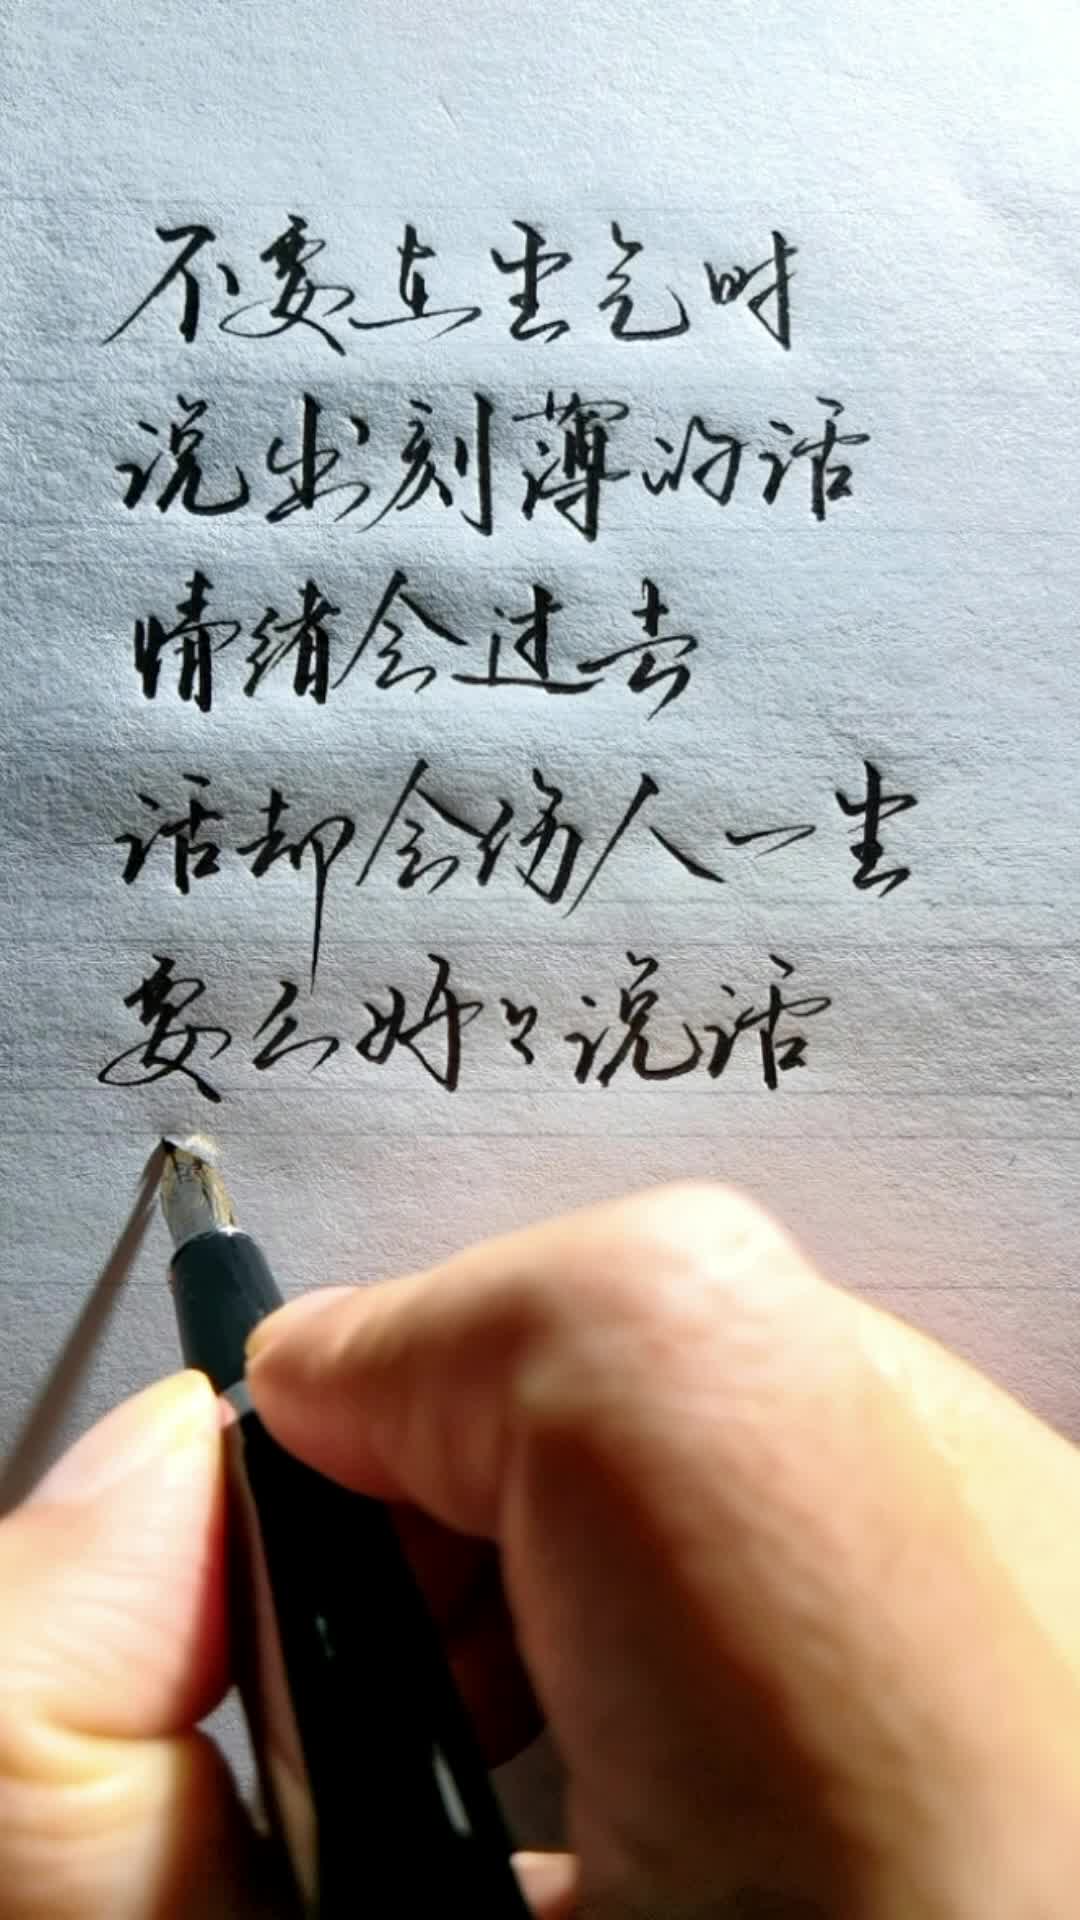 不要在生气时
说出刻薄的话
情绪会过去
话却会伤人一生
要么好々说话